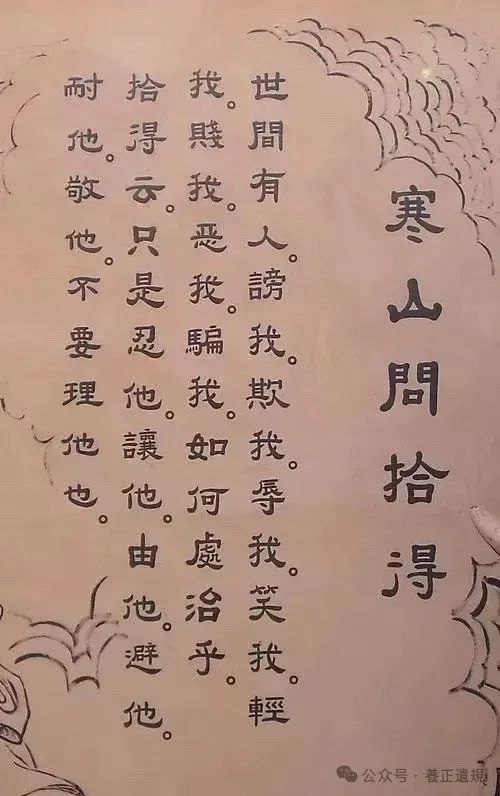 寒山問拾得
世間有人。謗我。欺我。辱我。笑我。輕
我。賤我。恶我。騙我。如何處治乎。
拾得云。只是忍他。讓他。由他。避他。
耐他。敬他。不要理他也。
公众号·養正遺規